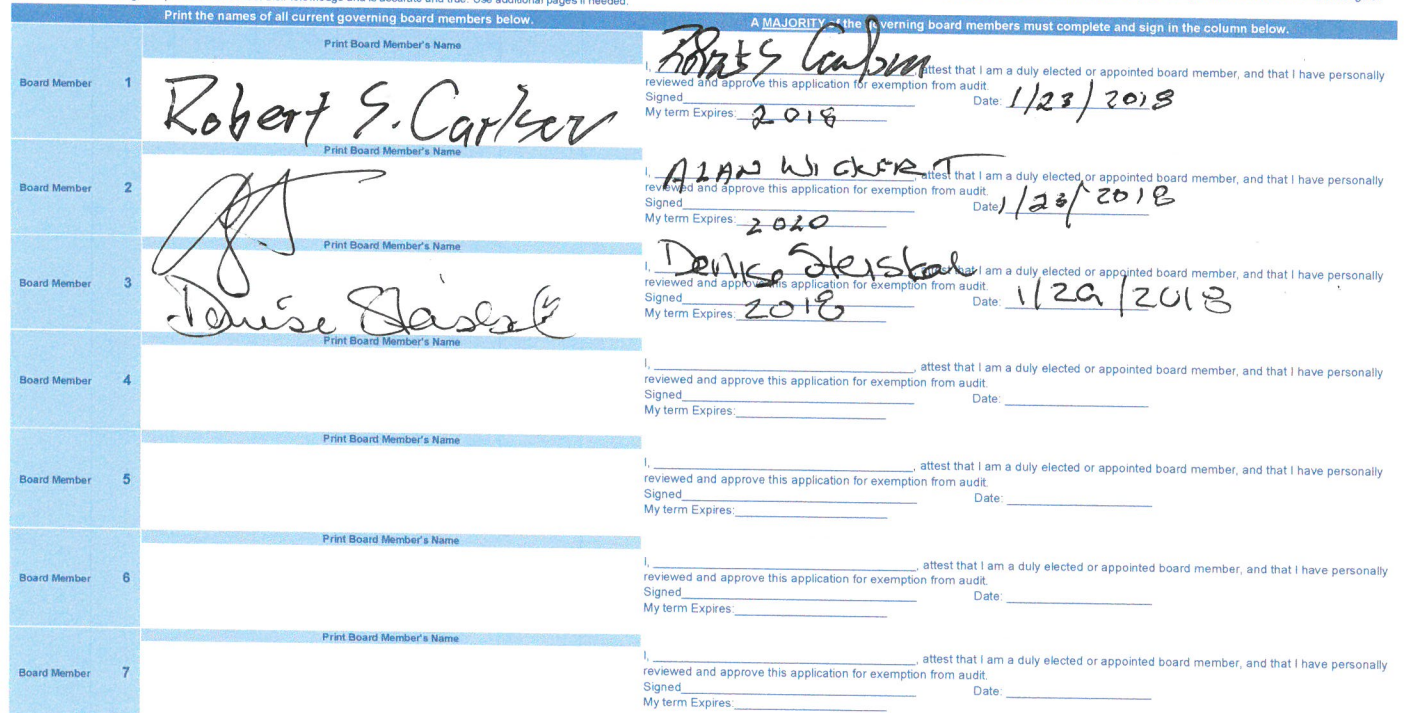 Print the names of all current governing board members below.
A MAJORITY of the governing board members must complete and sign in the column below.
Board Member 1
Print Board Member's Name
Robert S. Carlsen
I, Robert S Carlsen, attest that I am a duly elected or appointed board member, and that I have personally
reviewed and approve this application for exemption from audit.
Signed
Date: 1/23/2018
My term Expires: 2018
Board Member 2
Print Board Member's Name
I, ALAN WICKERT, attest that I am a duly elected or appointed board member, and that I have personally
reviewed and approve this application for exemption from audit.
Signed
Date: 1/23/2018
My term Expires: 2020
Board Member 3
Print Board Member's Name
Denise
I, Denise Steiskal, attest that I am a duly elected or appointed board member, and that I have personally
reviewed and approve this application for exemption from audit.
Signed
Date: 1/29/2018
My term Expires: 2018
Board Member 4
Print Board Member's Name
I, , attest that I am a duly elected or appointed board member, and that I have personally
reviewed and approve this application for exemption from audit.
Signed
Date:
My term Expires:
Board Member 5
Print Board Member's Name
I, , attest that I am a duly elected or appointed board member, and that I have personally
reviewed and approve this application for exemption from audit.
Signed
Date:
My term Expires:
Board Member 6
Print Board Member's Name
I, , attest that I am a duly elected or appointed board member, and that I have personally
reviewed and approve this application for exemption from audit.
Signed
Date:
My term Expires:
Board Member 7
Print Board Member's Name
I, , attest that I am a duly elected or appointed board member, and that I have personally
reviewed and approve this application for exemption from audit.
Signed
Date:
My term Expires: